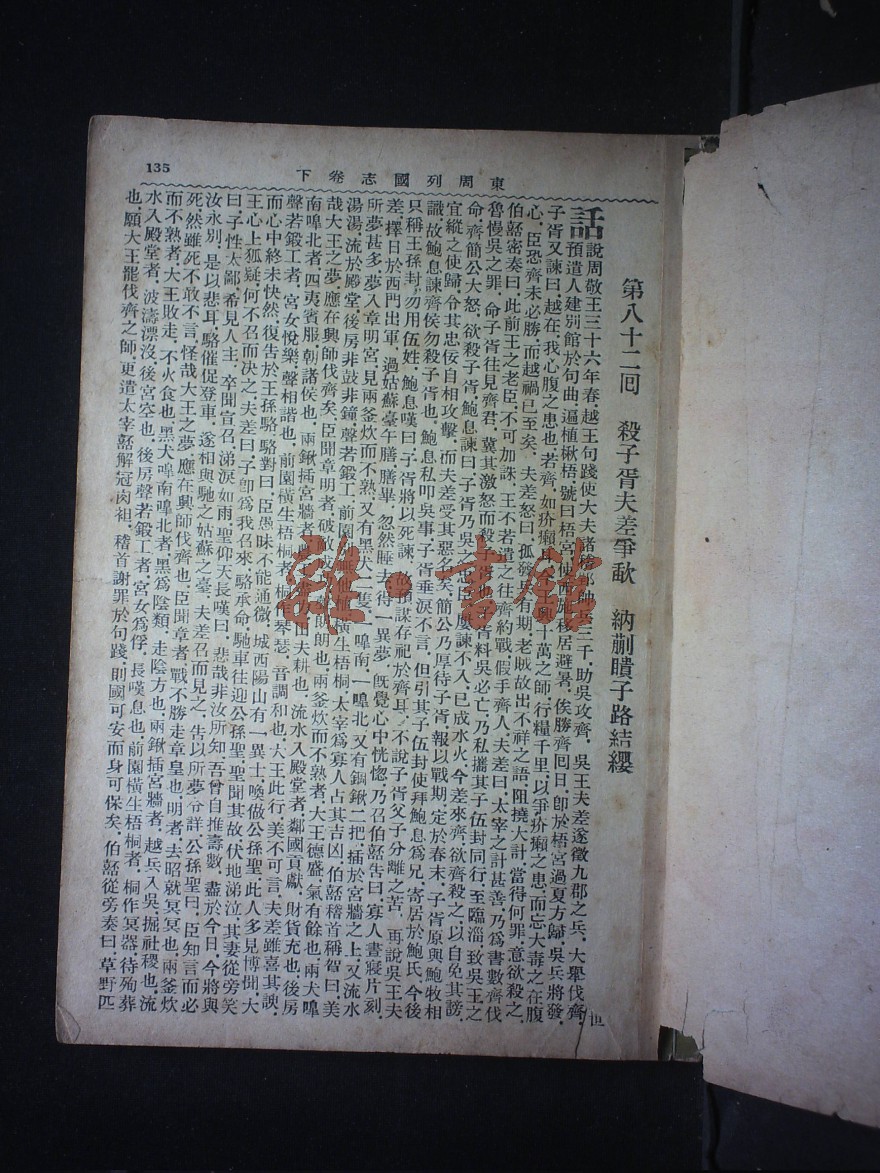 135
東周列國志卷下
第八十二回　殺子胥夫差爭歃　納蒯瞶子路結纓
話說周敬王三十六年春，越王句踐使大夫諸稽郢帥兵三千，助吳攻齊，吳王夫差遂徵九郡之兵，大舉伐齊，
預遣人建別館於句曲，遍植楸梧，號曰梧宮，使西施移居避暑，俟勝齊回日，卽於梧宮過夏方歸，吳兵將發，
子胥又諫曰，越在，我心腹之患也，若齊，如疥癩耳，今王興十萬之師，行糧千里，以爭疥癩之患，而忘大毒之在腹
心，臣恐齊未必勝，而越禍已至矣，夫差怒曰，孤發兵有期，老賊故出不祥之語，阻撓大計，當得何罪，意欲殺之，
伯嚭密奏曰，此前王之老臣，不可加誅，王不若遣之往齊約戰，假手齊人，夫差曰，太宰之計甚善，乃爲書數齊伐
魯慢吳之罪，命子胥往見齊君，冀其激怒而殺子胥也，子胥料吳必亡，乃私攜其子伍封同行，至臨淄，致吳王之
命，齊簡公大怒，欲殺子胥，鮑息諫曰，子胥乃吳之忠臣，屢諫不入，已成水火，今差來齊，欲齊殺之，以自免其謗，
宜縱之使歸，令其忠佞自相攻擊，而夫差受其惡名矣，簡公乃厚待子胥，報以戰期，定於春末，子胥原與鮑牧相
識，故鮑息諫齊侯勿殺子胥也，鮑息私叩吳事，子胥垂淚不言，但引其子伍封使拜鮑息爲兄，寄居於鮑氏，今後
只稱王孫封，勿用伍姓，鮑息嘆曰，子胥將以死諫，故預謀存祀於齊耳，不說子胥父子分離之苦，再說吳王夫
差，擇日於西門出軍，過姑蘇臺午膳，膳畢，忽然睡去，得一異夢，旣覺，心中恍惚，乃召伯嚭告曰，寡人晝寢片刻，
所夢甚多，夢入章明宮，見兩釜炊而不熟，又有黑犬二隻，一嘷南，一嘷北，又有鋼鍬二把，插於宮牆之上，又流水
湯湯，流於殿堂，後房非鼓非鐘，聲若鍛工，前園別無他植，橫生梧桐，太宰爲寡人占其吉凶，伯嚭稽首稱賀曰，美
哉大王之夢，應在興師伐齊矣，臣聞章明者，破敵成功，聲朗朗也，兩釜炊而不熟者，大王德盛，氣有餘也，兩犬嘷
南嘷北者，四夷賓服，朝諸侯也，兩鍬插宮牆者，農工盡力，田夫耕也，流水入殿堂者，鄰國貢獻，財貨充也，後房
聲若鍛工者，宮女悅樂，聲相諧也，前園橫生梧桐者，桐作琴瑟，音調和也，大王此行，美不可言，夫差雖喜其諛，
而心中終未快然，復告於王孫駱，駱對曰，臣愚昧不能通微，城西陽山有一異士，喚做公孫聖，此人多見博聞，大
王心上狐疑，何不召而決之，夫差曰，子卽爲我召來，駱承命，馳車往迎公孫聖，聖聞其故，伏地涕泣，其妻從旁笑
曰，子性太鄙，希見人主，卒聞宣召，涕淚如雨，聖仰天長嘆曰，悲哉，非汝所知，吾曾自推壽數，盡於今日，今將與
汝永別，是以悲耳，駱催促登車，遂相與馳之姑蘇之臺，夫差召而見之，告以所夢之詳，公孫聖曰，臣知言而必
死，然雖死不敢不言，怪哉大王之夢，應在興師伐齊也，臣聞章者，戰不勝，走章皇也，明者，去昭就冥冥也，兩釜炊
而不熟者，大王敗走，不火食也，黑犬嘷南嘷北者，黑爲陰類，走陰方也，兩鍬插宮牆者，越兵入吳，掘社稷也，流
水入殿堂者，波濤漂沒，後宮空也，後房聲若鍛工者，宮女爲俘，長嘆息也，前園橫生梧桐者，桐作冥器，待殉葬
也，願大王罷伐齊之師，更遣太宰嚭解冠肉袒，稽首謝罪於句踐，則國可安而身可保矣，伯嚭從旁奏曰，草野匹
雜·書館